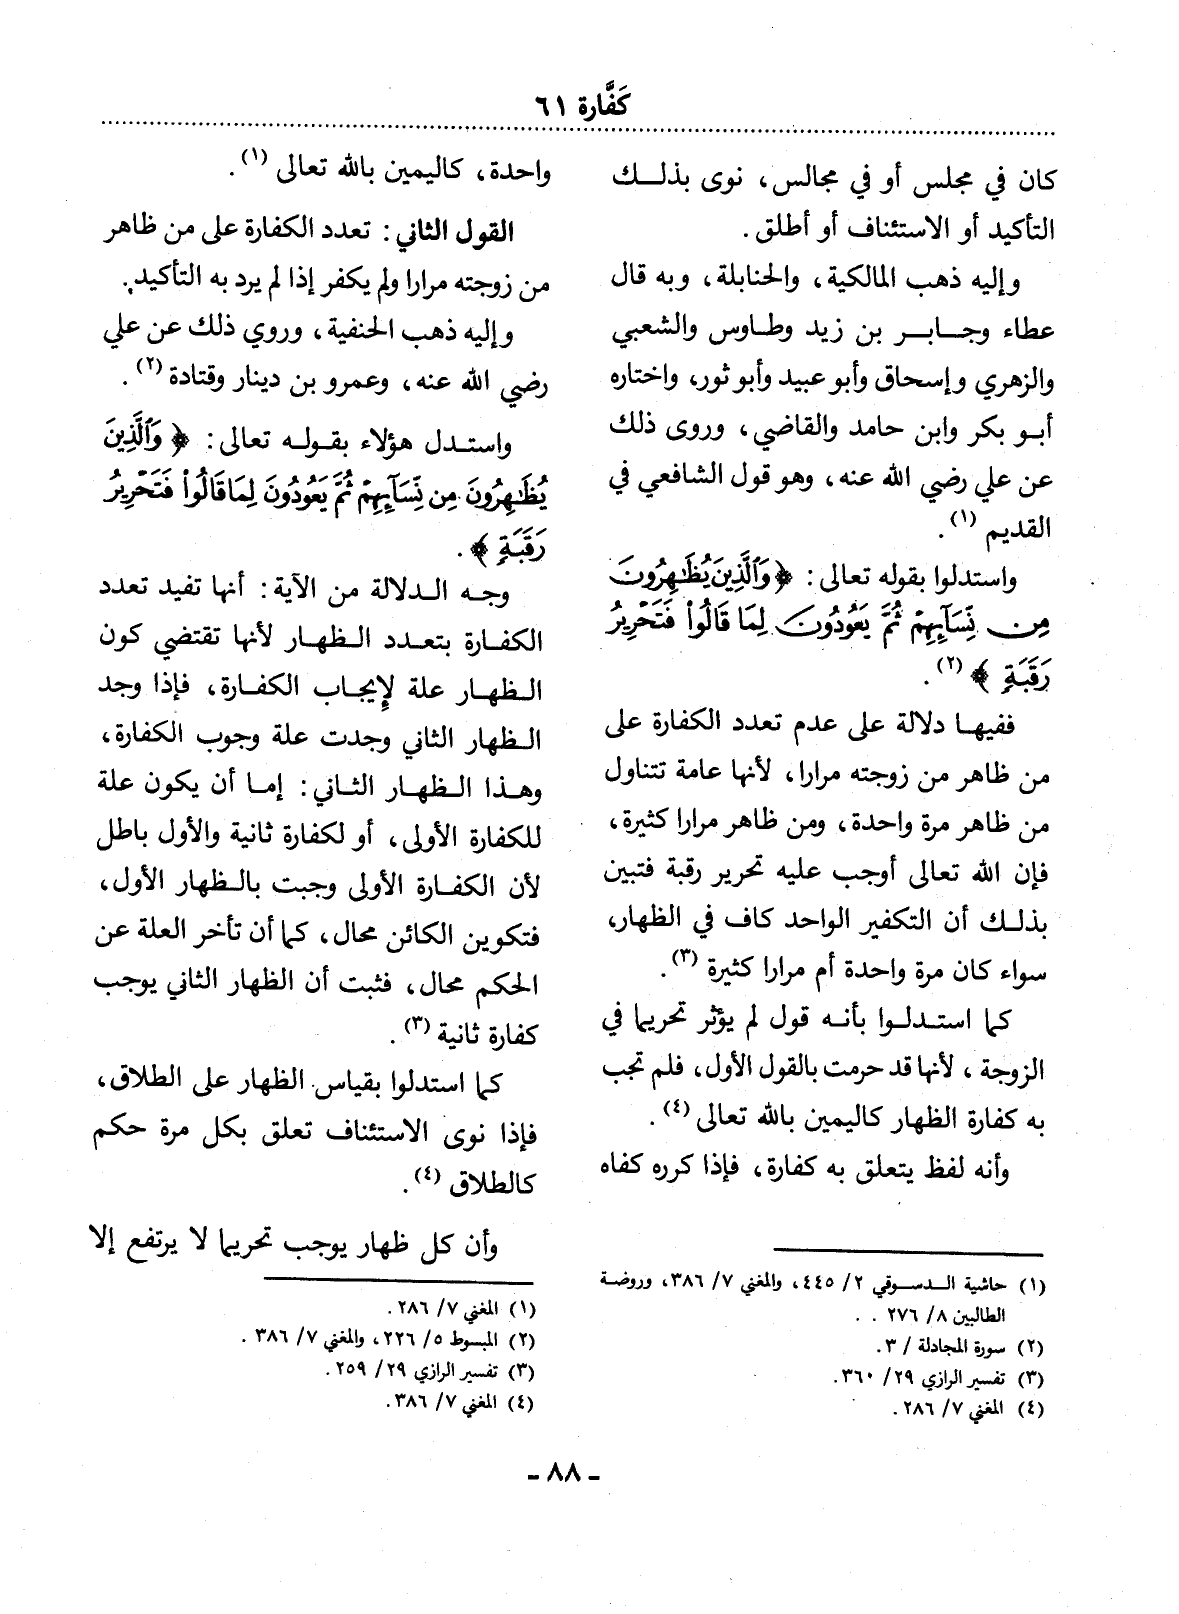 كَفَّارة ٦١
كان في مجلس أو في مجالس، نوى بذلك
التأكيد أو الاستئناف أو أطلق.
وإليه ذهب المالكية، والحنابلة، وبه قال
عطاء وجابر بن زيد وطاوس والشعبي
والزهري وإسحاق وأبو عبيد وأبو ثور، واختاره
أبو بكر وابن حامد والقاضي، وروى ذلك
عن علي رضي الله عنه، وهو قول الشافعي في
القديم (١).
واستدلوا بقوله تعالى: ﴿وَٱلَّذِينَ يُظَـٰهِرُونَ
مِن نِّسَآئِهِمْ ثُمَّ يَعُودُونَ لِمَا قَالُوا۟ فَتَحْرِيرُ
رَقَبَةٍ﴾ (٢).
ففيها دلالة على عدم تعدد الكفارة على
من ظاهر من زوجته مرارا، لأنها عامة تتناول
من ظاهر مرة واحدة، ومن ظاهر مرارا كثيرة،
فإن الله تعالى أوجب عليه تحرير رقبة فتبين
بذلك أن التكفير الواحد كاف في الظهار،
سواء كان مرة واحدة أم مرارا كثيرة (٣).
كما استدلوا بأنه قول لم يؤثر تحريما في
الزوجة، لأنها قد حرمت بالقول الأول، فلم تجب
به كفارة الظهار كاليمين بالله تعالى (٤).
وأنه لفظ يتعلق به كفارة، فإذا كرره كفاه
(١) حاشية الدسوقي ٢/ ٤٤٥، والمغني ٧/ ٣٨٦، وروضة
الطالبين ٨/ ٢٧٦ . .
(٢) سورة المجادلة / ٣.
(٣) تفسير الرازي ٢٩/ ٣٦٠.
(٤) المغني ٧/ ٢٨٦.
واحدة، كاليمين بالله تعالى (١).
القول الثاني: تعدد الكفارة على من ظاهر
من زوجته مرارا ولم يكفر إذا لم يرد به التأكيد.
وإليه ذهب الحنفية، وروي ذلك عن علي
رضي الله عنه، وعمرو بن دينار وقتادة (٢).
واستدل هؤلاء بقوله تعالى: ﴿وَٱلَّذِينَ
يُظَـٰهِرُونَ مِن نِّسَآئِهِمْ ثُمَّ يَعُودُونَ لِمَا قَالُوا۟ فَتَحْرِيرُ
رَقَبَةٍ﴾.
وجه الدلالة من الآية: أنها تفيد تعدد
الكفارة بتعدد الظهار لأنها تقتضي كون
الظهار علة لإيجاب الكفارة، فإذا وجد
الظهار الثاني وجدت علة وجوب الكفارة،
وهذا الظهار الثاني: إما أن يكون علة
للكفارة الأولى، أو لكفارة ثانية والأول باطل
لأن الكفارة الأولى وجبت بالظهار الأول،
فتكوين الكائن محال، كما أن تأخر العلة عن
الحكم محال، فثبت أن الظهار الثاني يوجب
كفارة ثانية (٣).
كما استدلوا بقياس الظهار على الطلاق،
فإذا نوى الاستئناف تعلق بكل مرة حكم
كالطلاق (٤).
وأن كل ظهار يوجب تحريما لا يرتفع إلا
(١) المغني ٧/ ٢٨٦.
(٢) المبسوط ٥/ ٢٢٦، والمغني ٧/ ٣٨٦.
(٣) تفسير الرازي ٢٩/ ٢٥٩.
(٤) المغني ٧/ ٣٨٦.
- ٨٨ -